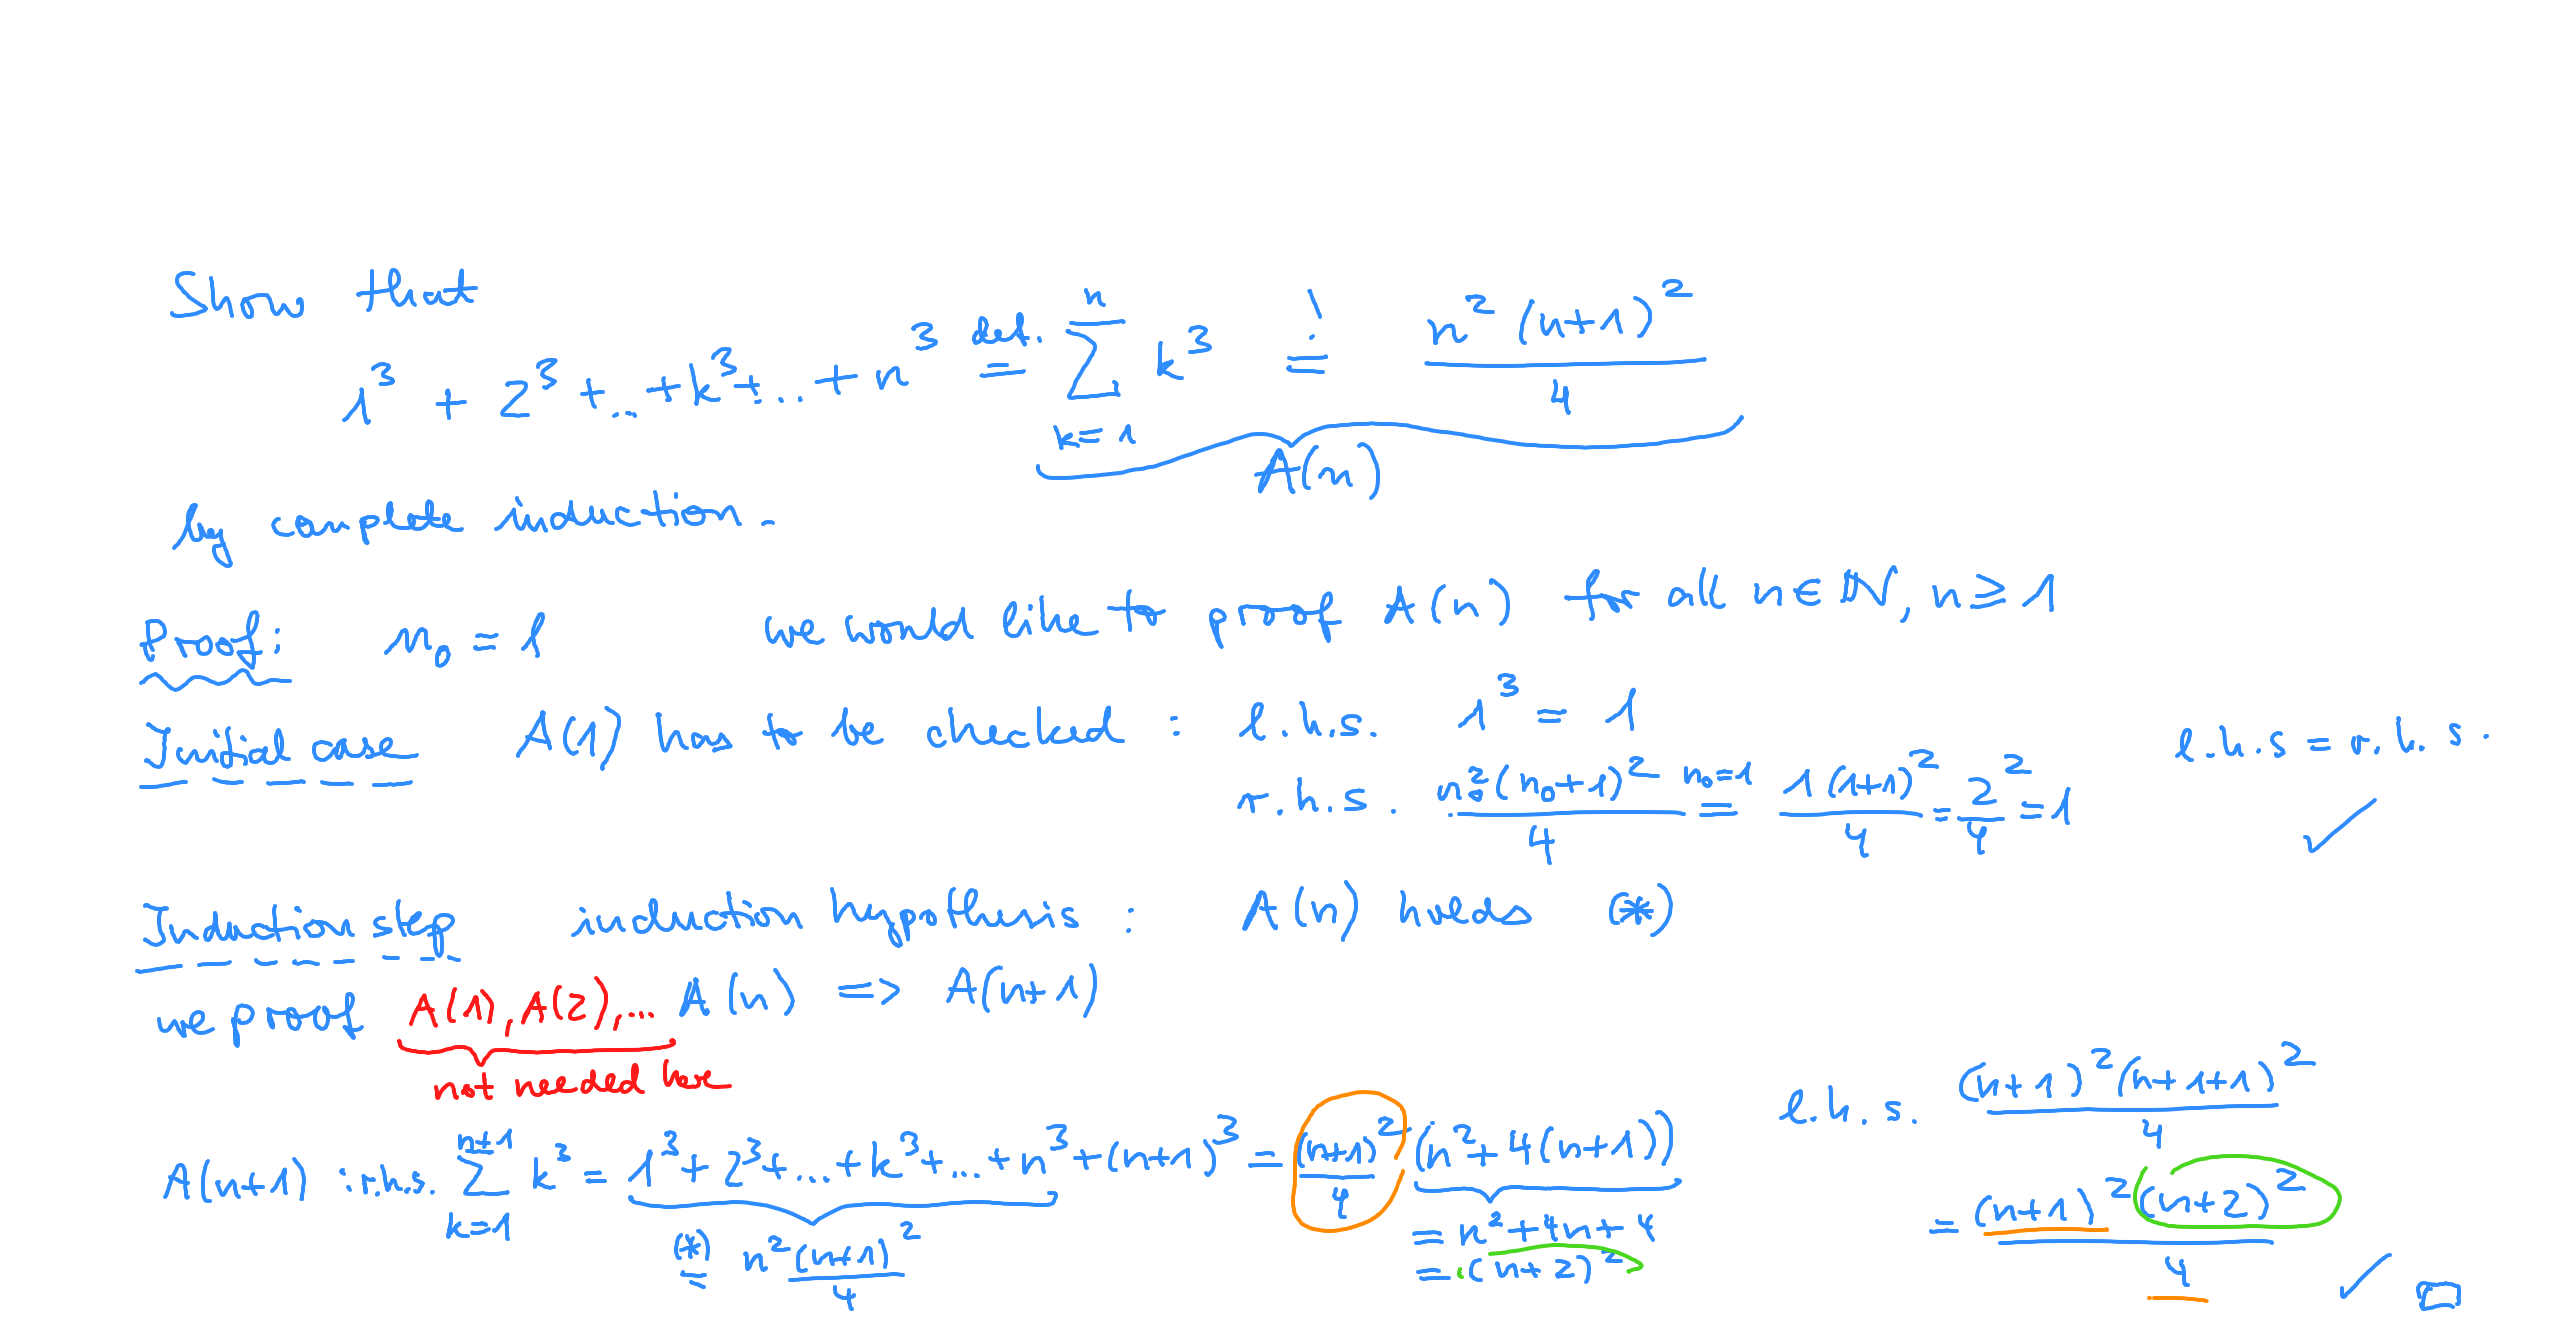 Show that
1³ + 2³ + ... + k³ + ... + n³ =^{def.} \sum_{k=1}^{n} k³ =^{!} \frac{n² (n+1)²}{4}
A(n)
by complete induction.
Proof: n₀ = 1 we would like to proof A(n) for all n ∈ ℕ, n ≥ 1
Initial case A(1) has to be checked : l.h.s. 1³ = 1
r.h.s. \frac{n₀²(n₀+1)²}{4} =^{n₀=1} \frac{1(1+1)²}{4} = \frac{2²}{4} = 1
l.h.s = r.h.s. ✓
Induction step induction hypothesis : A(n) holds (*)
we proof A(1), A(2), ... A(n) => A(n+1)
not needed here
A(n+1) : r.h.s. \sum_{k=1}^{n+1} k³ = 1³ + 2³ + ... + k³ + ... + n³ + (n+1)³ = \frac{(n+1)²}{4} (n² + 4(n+1))
(*) = \frac{n²(n+1)²}{4}
= n² + 4n + 4
= (n+2)²
l.h.s. \frac{(n+1)²(n+1+1)²}{4}
= \frac{(n+1)²(n+2)²}{4} ✓ □